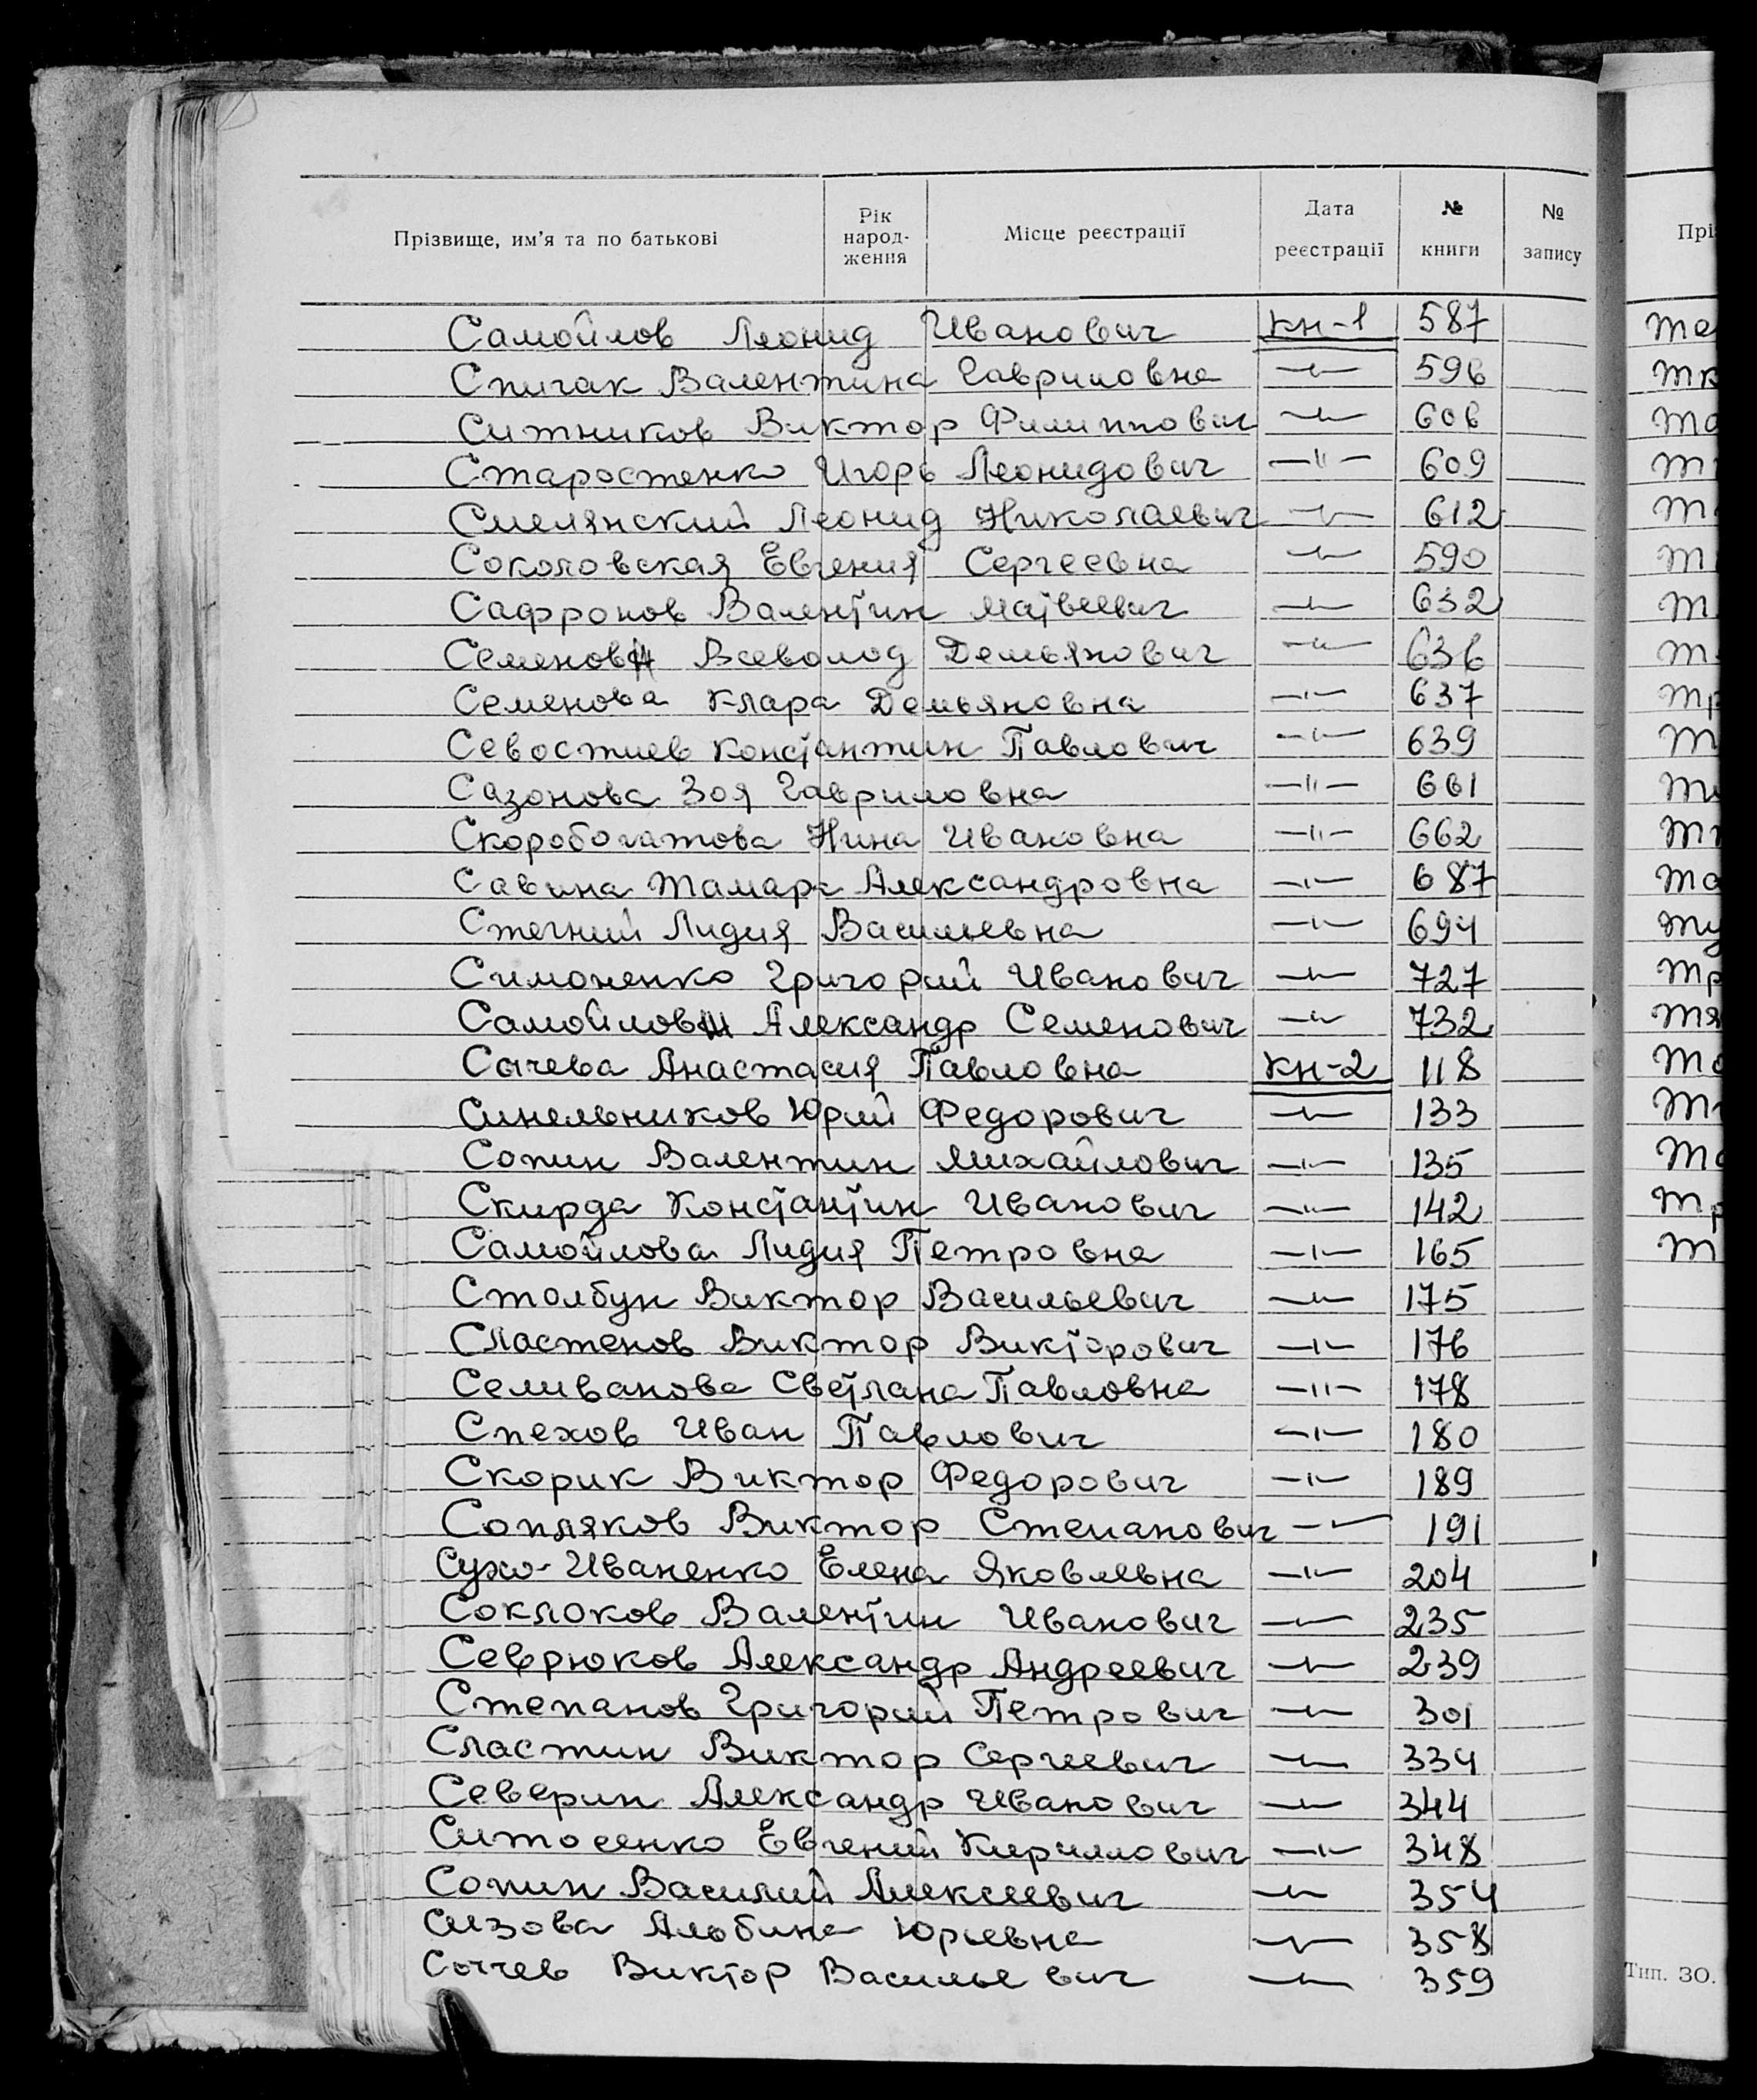 Прізвище, им'я та по батькові Рік народ- ження Місце реєстрації Дата реєстрації № книги № запису
Самойлов Леонид Иванович кн-1 587
Спичак Валентина Гавриловна —"— 596
Ситников Виктор Филиппович —"— 606
Старостенко Игорь Леонидович —"— 609
Смелянский Леонид Николаевич —"— 612
Соколовская Евгения Сергеевна —"— 590
Сафронов Валентин Матвеевич —"— 632
Семенов Всеволод Демьянович —"— 636
Семенова Клара Демьяновна —"— 637
Севостиев Константин Павлович —"— 639
Сазонова Зоя Гавриловна —"— 661
Скоробогатова Нина Ивановна —"— 662
Савина Тамара Александровна —"— 687
Стегний Лидия Васильевна —"— 694
Симоненко Григорий Иванович —"— 727
Самойлов Александр Семенович —"— 732
Сычева Анастасия Павловна кн-2 118
Синельников Юрий Федорович —"— 133
Сопин Валентин Михайлович —"— 135
Скирда Константин Иванович —"— 142
Самойлова Лидия Петровна —"— 165
Столбун Виктор Васильевич —"— 175
Сластенов Виктор Викторович —"— 176
Селиванова Светлана Павловна —"— 178
Спехов Иван Павлович —"— 180
Скорик Виктор Федорович —"— 189
Сопляков Виктор Степанович —"— 191
Сухо-Иваненко Елена Яковлевна —"— 204
Соклоков Валентин Иванович —"— 235
Севрюков Александр Андреевич —"— 239
Степанов Григорий Петрович —"— 301
Сластин Виктор Сергеевич —"— 334
Северин Александр Иванович —"— 344
Ситосенко Евгений Кириллович —"— 348
Сопин Василий Алексеевич —"— 354
Сизова Альбина Юрьевна —"— 358
Сычев Виктор Васильевич —"— 359
Прі
Тип. ЗО.